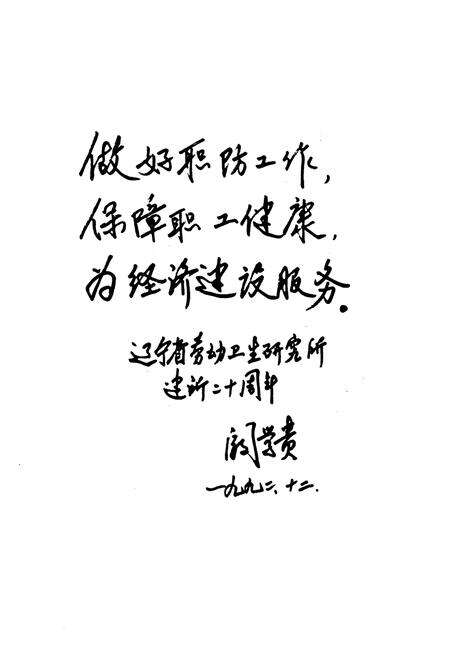 做好职防工作，
保障职工健康，
为经济建设服务。
辽宁省劳动卫生研究所
建所二十周年
阎学贵
一九九二、十二.